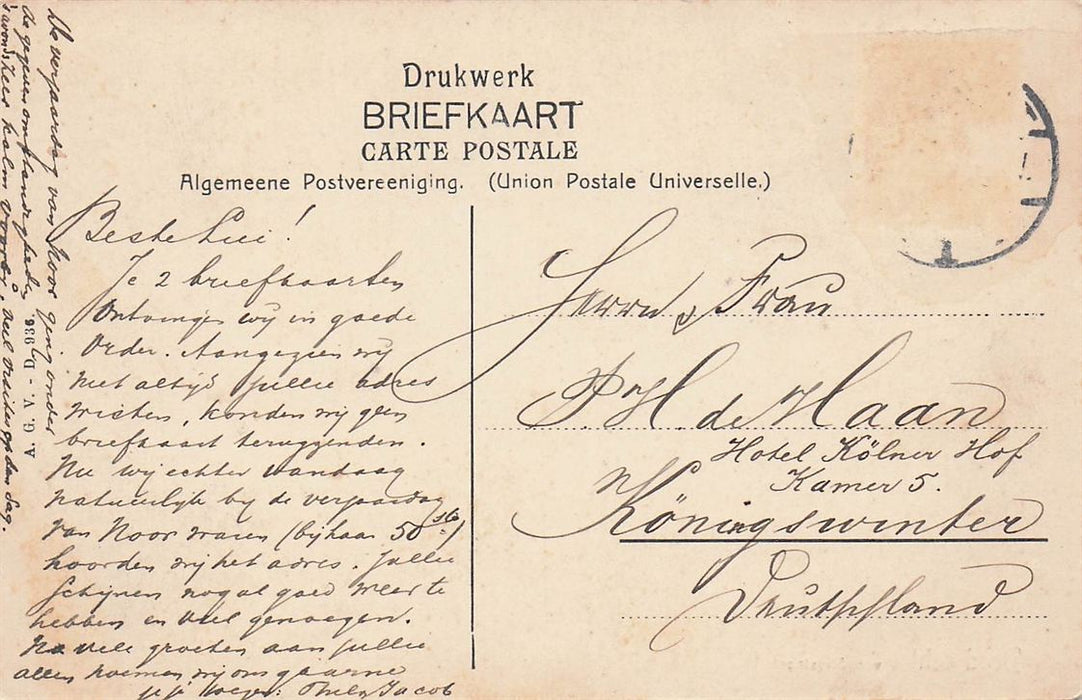 Drukwerk
BRIEFKAART
CARTE POSTALE
Algemeene Postvereeniging. (Union Postale Universelle.)
Beste Lui!
Je 2 briefkaarten
ontvingen wij in goede
order. Aangezien wij
niet altijd jullie adres
wisten, konden wij geen
briefkaart terugzenden.
Nu wij echter vandaag
natuurlijk bij de verjaardag
van Noor waren (bij haar 50ste)
hoorden wij het adres. Jullie
schijnen nogal goed weer te
hebben en veel genoegen.
Na vele groeten aan jullie
allen noemen wij ons gaarne
Jacob
De verjaardag van Noor ging onder
de gegeven omstandigheden
's avonds zeer kalm voorbij, veel visites op den dag.
A. G. V. - D. 936
Herrn & Frau
P H de Haan
Hotel Kölner Hof
Kamer 5.
Königswinter
Deutschland